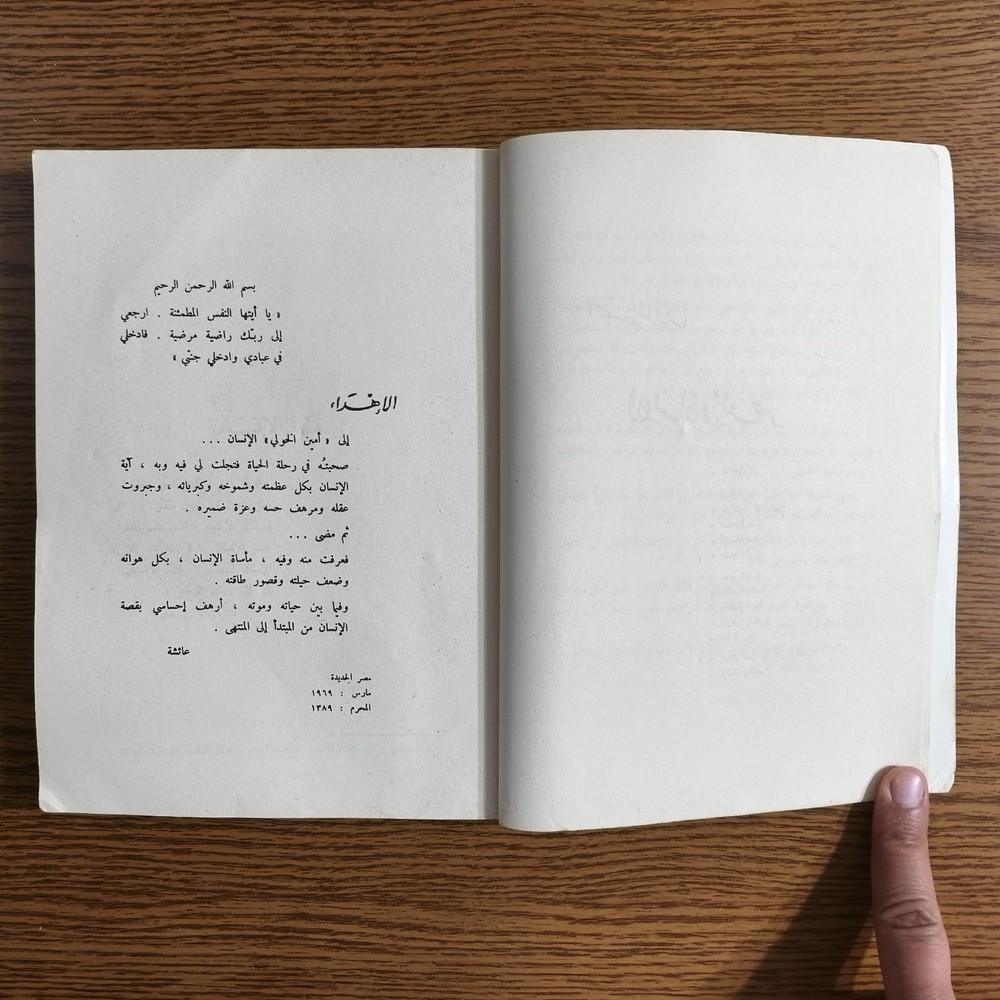 بسم الله الرحمن الرحيم
« يا أيتها النفس المطمئنة . ارجعي
إلى ربـّك راضية مرضية . فادخلي
في عبادي وادخلي جنتي »
الإهداء
إلى « أمين الخولي » الإنسان ...
صحبتُه في رحلة الحياة فتجلت لي فيه وبه ، آية
الإنسان بكل عظمته وشموخه وكبريائه ، وجبروت
عقله ومرهف حسه وعزة ضميره .
ثم مضى ...
فعرفت منه وفيه ، مأساة الإنسان ، بكل هوانه
وضعف حيلته وقصور طاقته .
وفيا بين حياته وموته ، أرهف إحساسي بقصة
الإنسان من المبتدأ إلى المنتهى .
عائشة
مصر الجديدة
مارس : ١٩٦٩
المحرم : ١٣٨٩